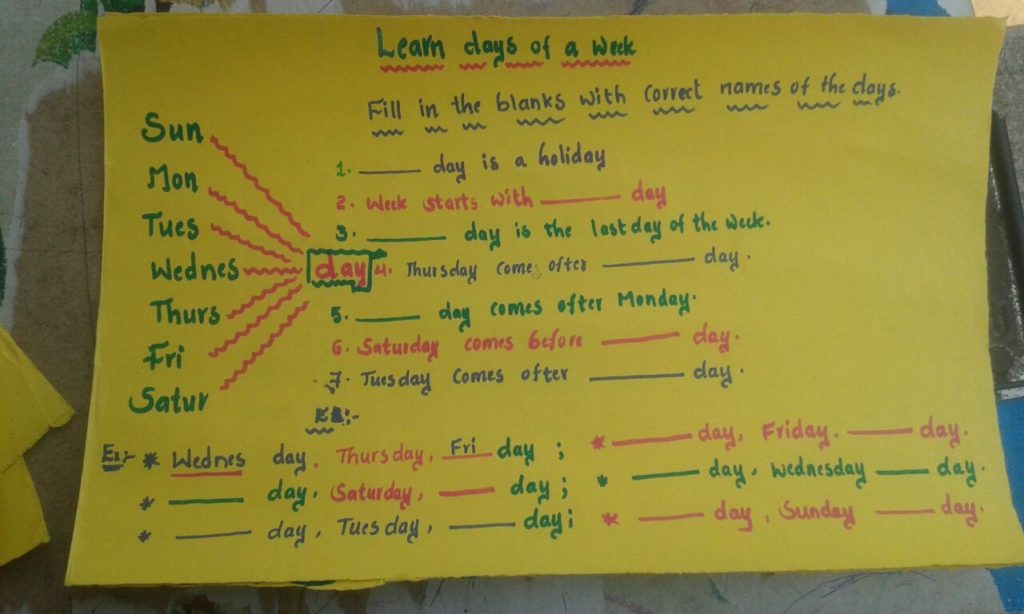 Learn days of a week
Fill in the blanks with correct names of the days.
Sun
Mon
Tues
Wednes
Thurs
Fri
Satur
day
1. ______ day is a holiday
2. Week starts with ______ day
3. ______ day is the last day of the week.
4. Thursday comes after ______ day.
5. ______ day comes after Monday.
6. Saturday comes before ______ day.
7. Tuesday comes after ______ day.
Ex:- * Wednes day, Thursday, Fri day ; * ______ day, Friday. ______ day.
* ______ day, Saturday, ______ day ; * ______ day, wednesday ______ day.
* ______ day, Tuesday, ______ day; * ______ day, Sunday ______ day.